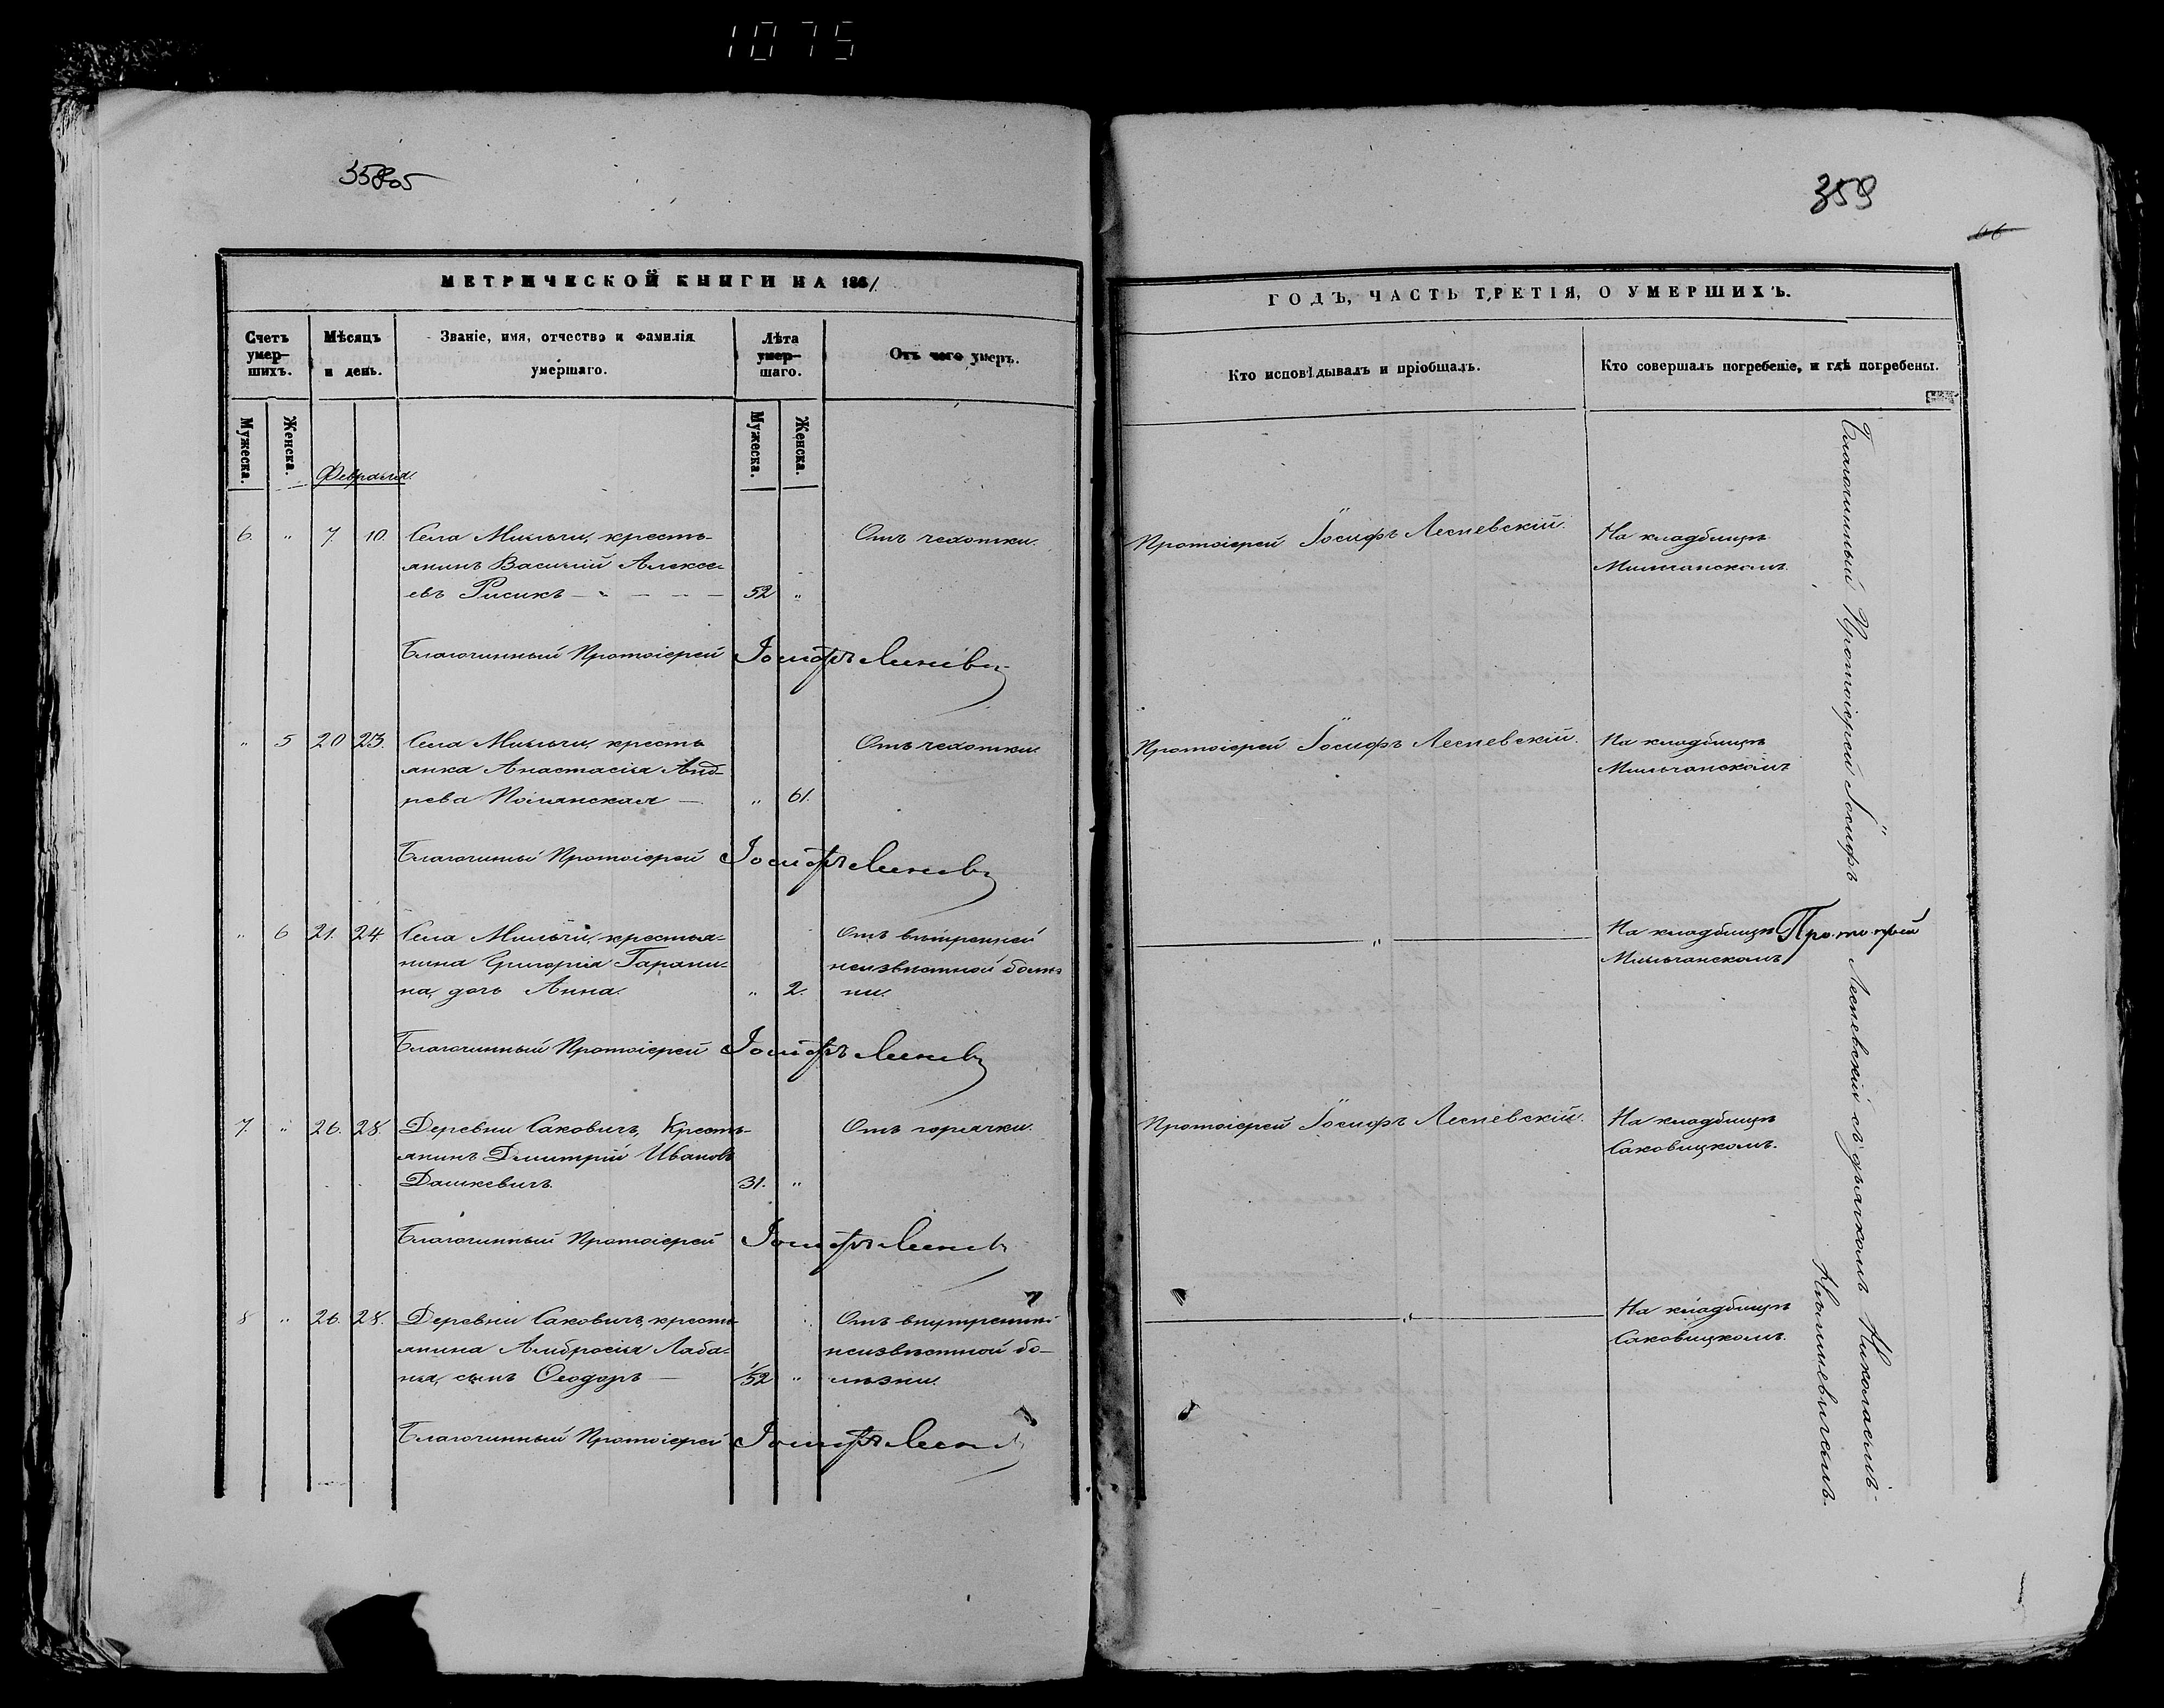 1075
358об
359
МЕТРИЧЕСКОЙ КНИГИ НА 1861
ГОДЪ, ЧАСТЬ ТРЕТІЯ, О УМЕРШИХЪ.
Счетъ умер-шихъ.
Мѣсяцъ и день.
Званіе, имя, отчество и фамилія умершаго.
Лѣта умер-шаго.
Отъ чего умеръ.
Кто исповѣдывалъ и пріобщалъ.
Кто совершалъ погребеніе, и гдѣ погребены.
Мужеска.
Женска.
Мужеска.
Женска.
Февраля.
6. " 7. 10. Села Мильчи, кресть-
янинъ Василій Алексе-
евъ Рисикъ 52 "
Отъ чахотки.
Протоіерей Іосифъ Леспевскій.
На кладбищѣ
Мильчанскомъ.
Благочинный Протоіерей Іосифъ
" 5 20 23. Села Мильчи, кресть
янка Анастасія Анд-
реева Полянская " 61.
Отъ чахотки.
Протоіерей Іосифъ Леспевскій.
На кладбищѣ
Мильчанскомъ
Благочинный Протоіерей Іосифъ
" 6 21. 24. Села Мильчи, крестья-
нина Григорія Гарани-
на, дочь Анна. " 2.
Отъ внутренней
неизвѣстной болѣз
ни.
"
На кладбищѣ
Мильчанскомъ
Благочинный Протоіерей Іосифъ
7. " 26. 28. Деревни Саковичъ, Кресть-
янинъ Дмитрій Ивановъ
Дашкевичъ. 31. "
Отъ горячки.
Протоіерей Іосифъ Леспевскій.
На кладбищѣ
Саковицкомъ.
Благочинный Протоіерей Іосифъ
8 " 26. 28. Деревни Саковичъ, кресть
янина Амбросія Лаба-
ня, сынъ Ѳеодоръ 1/52 "
Отъ внутренней
неизвѣстной бо-
лѣзни.
"
На кладбищѣ
Саковицкомъ.
Благочинный Протоіерей Іосифъ
Благочинный Протоіерей Іосифъ Леспевскій съ дьячкомъ Николаемъ
Протоіерей